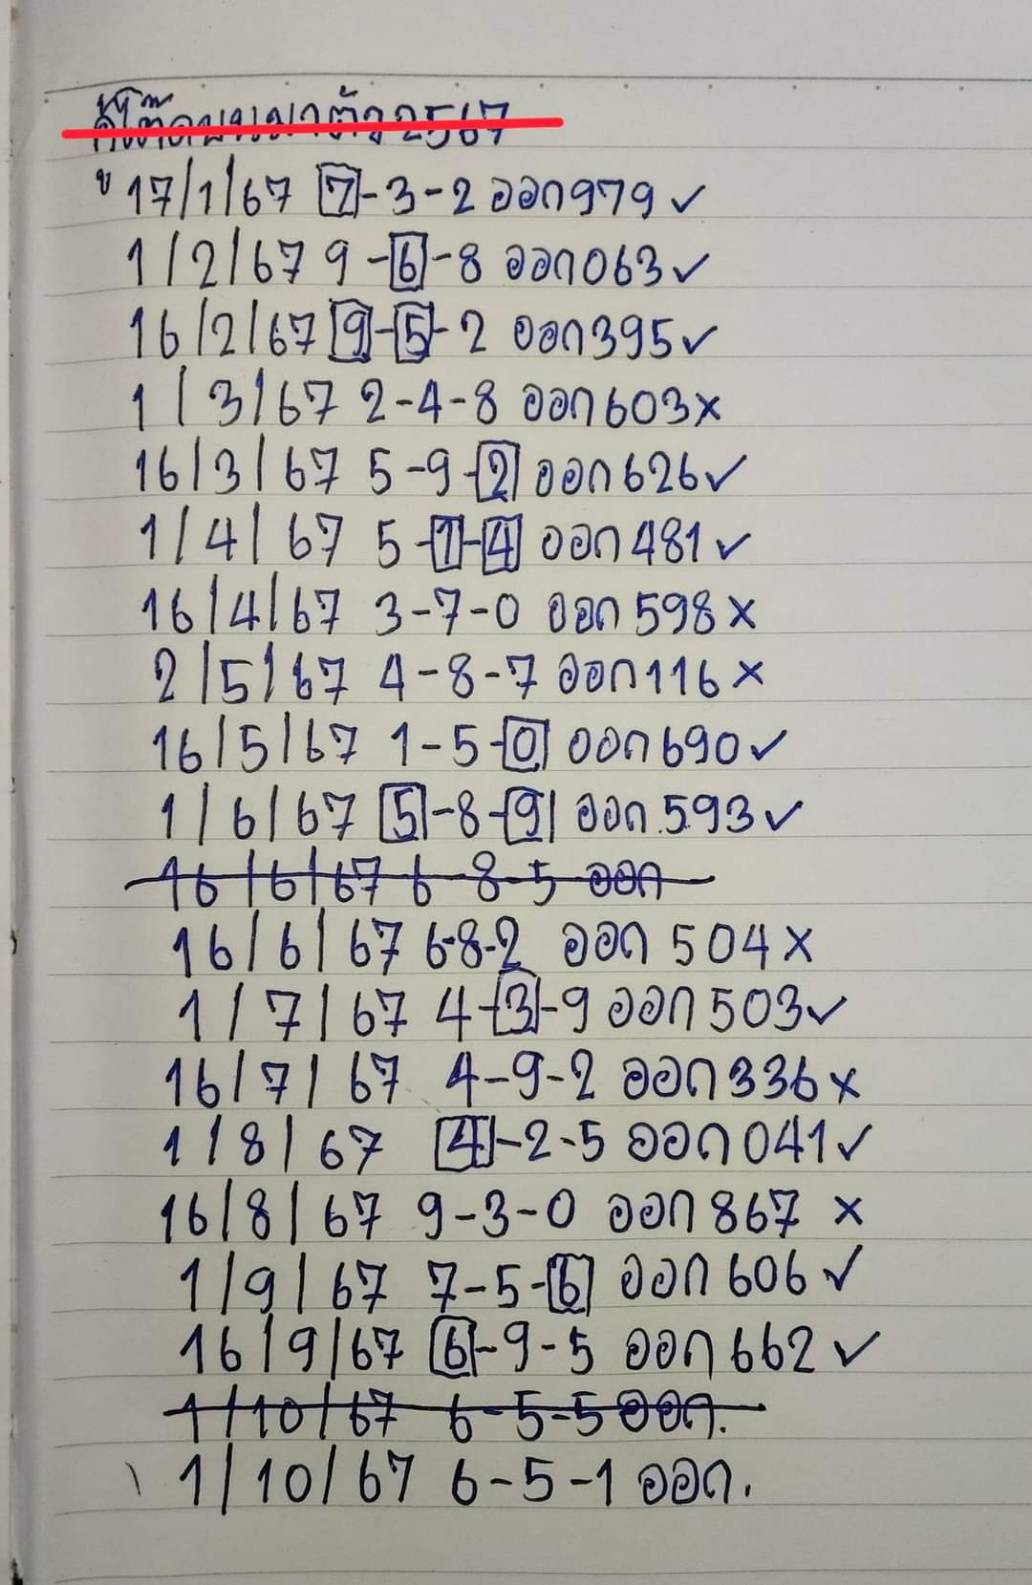 2567
บ 17/1/67 7-3-2 ออก979✓
1/2/67 9-6-8 ออก063✓
16/2/67 9-5-2 ออก395✓
1/3/67 2-4-8 ออก603×
16/3/67 5-9-2 ออก626✓
1/4/67 5-1-4 ออก481✓
16/4/67 3-7-0 ออก598×
2/5/67 4-8-7 ออก116×
16/5/67 1-5-0 ออก690✓
1/6/67 5-8-9 ออก.593✓
16/6/67 6-8-5 ออก
16/6/67 6-8-2 ออก 504×
1/7/67 4-3-9 ออก503✓
16/7/67 4-9-2 ออก336×
1/8/67 4-2-5 ออก041✓
16/8/67 9-3-0 ออก867 ×
1/9/67 7-5-6 ออก606✓
16/9/67 6-9-5 ออก662✓
1/10/67 6-5-5 ออก.
1/10/67 6-5-1 ออก.